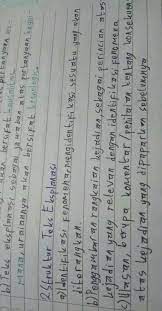 akan bersifat
b) teks eksplanasi sebagai jawaban atas pertanyaan bagai-
mana, uraiannya akan bersifat kronologis.
2. Struktur Teks Eksplanasi
a) Identifikasi Fenomena: mengidentifikasi sesuatu yang akan
diterangkan.
b) Penggambaran rangkaian kejadian, sebagai perincian atas
kejadian yang relevan dengan identifikasi fenomena
c) Ulasan, berupa komentar/penilaian tentang konsekuensi
atas kejadian yang dipaparkan sebelumnya